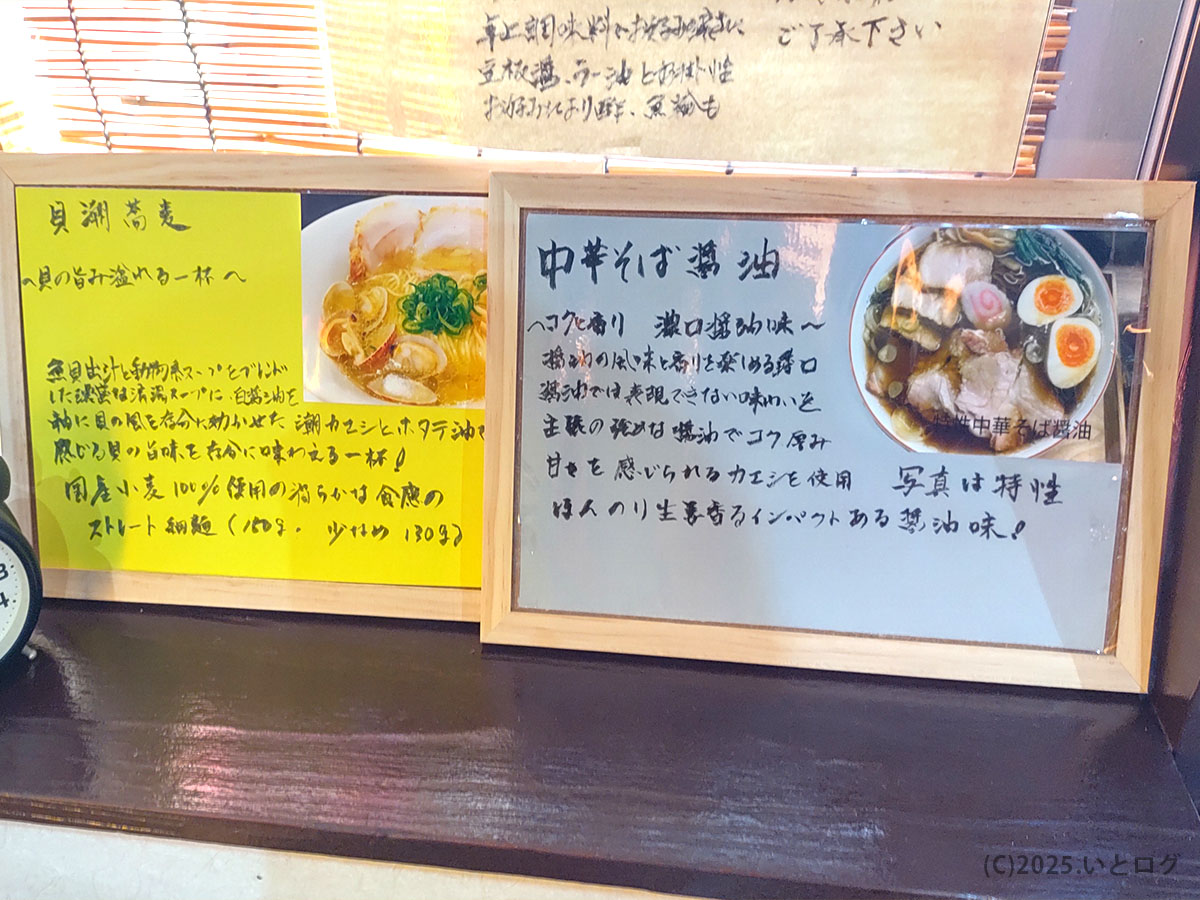 卓上調味料でお好みの辛さに
豆板醤、ラー油と相性
お好みにより酢、魚粉も
ご了承下さい
貝潮蕎麦
〜貝の旨み溢れる一杯〜
魚貝出汁と動物系スープをブレンド
した淡麗な清湯スープに、白醤油を
軸に貝の風を存分に効かせた潮カエシとホタテ油で
感じる貝の旨味を存分に味わえる一杯!
国産小麦100%使用の滑らかな食感の
ストレート細麺(150g. 少なめ 130g)
中華そば醤油
〜コクと香り 濃口醤油味〜
醤油の風味と香りを楽しめる
醤油では表現できない味わいを
主張の強めな醤油でコク厚み
甘さを感じられるカエシを使用
ほんのり生姜香るインパクトある醤油味!
写真は特性
特性中華そば醤油
(C)2025.いとログ